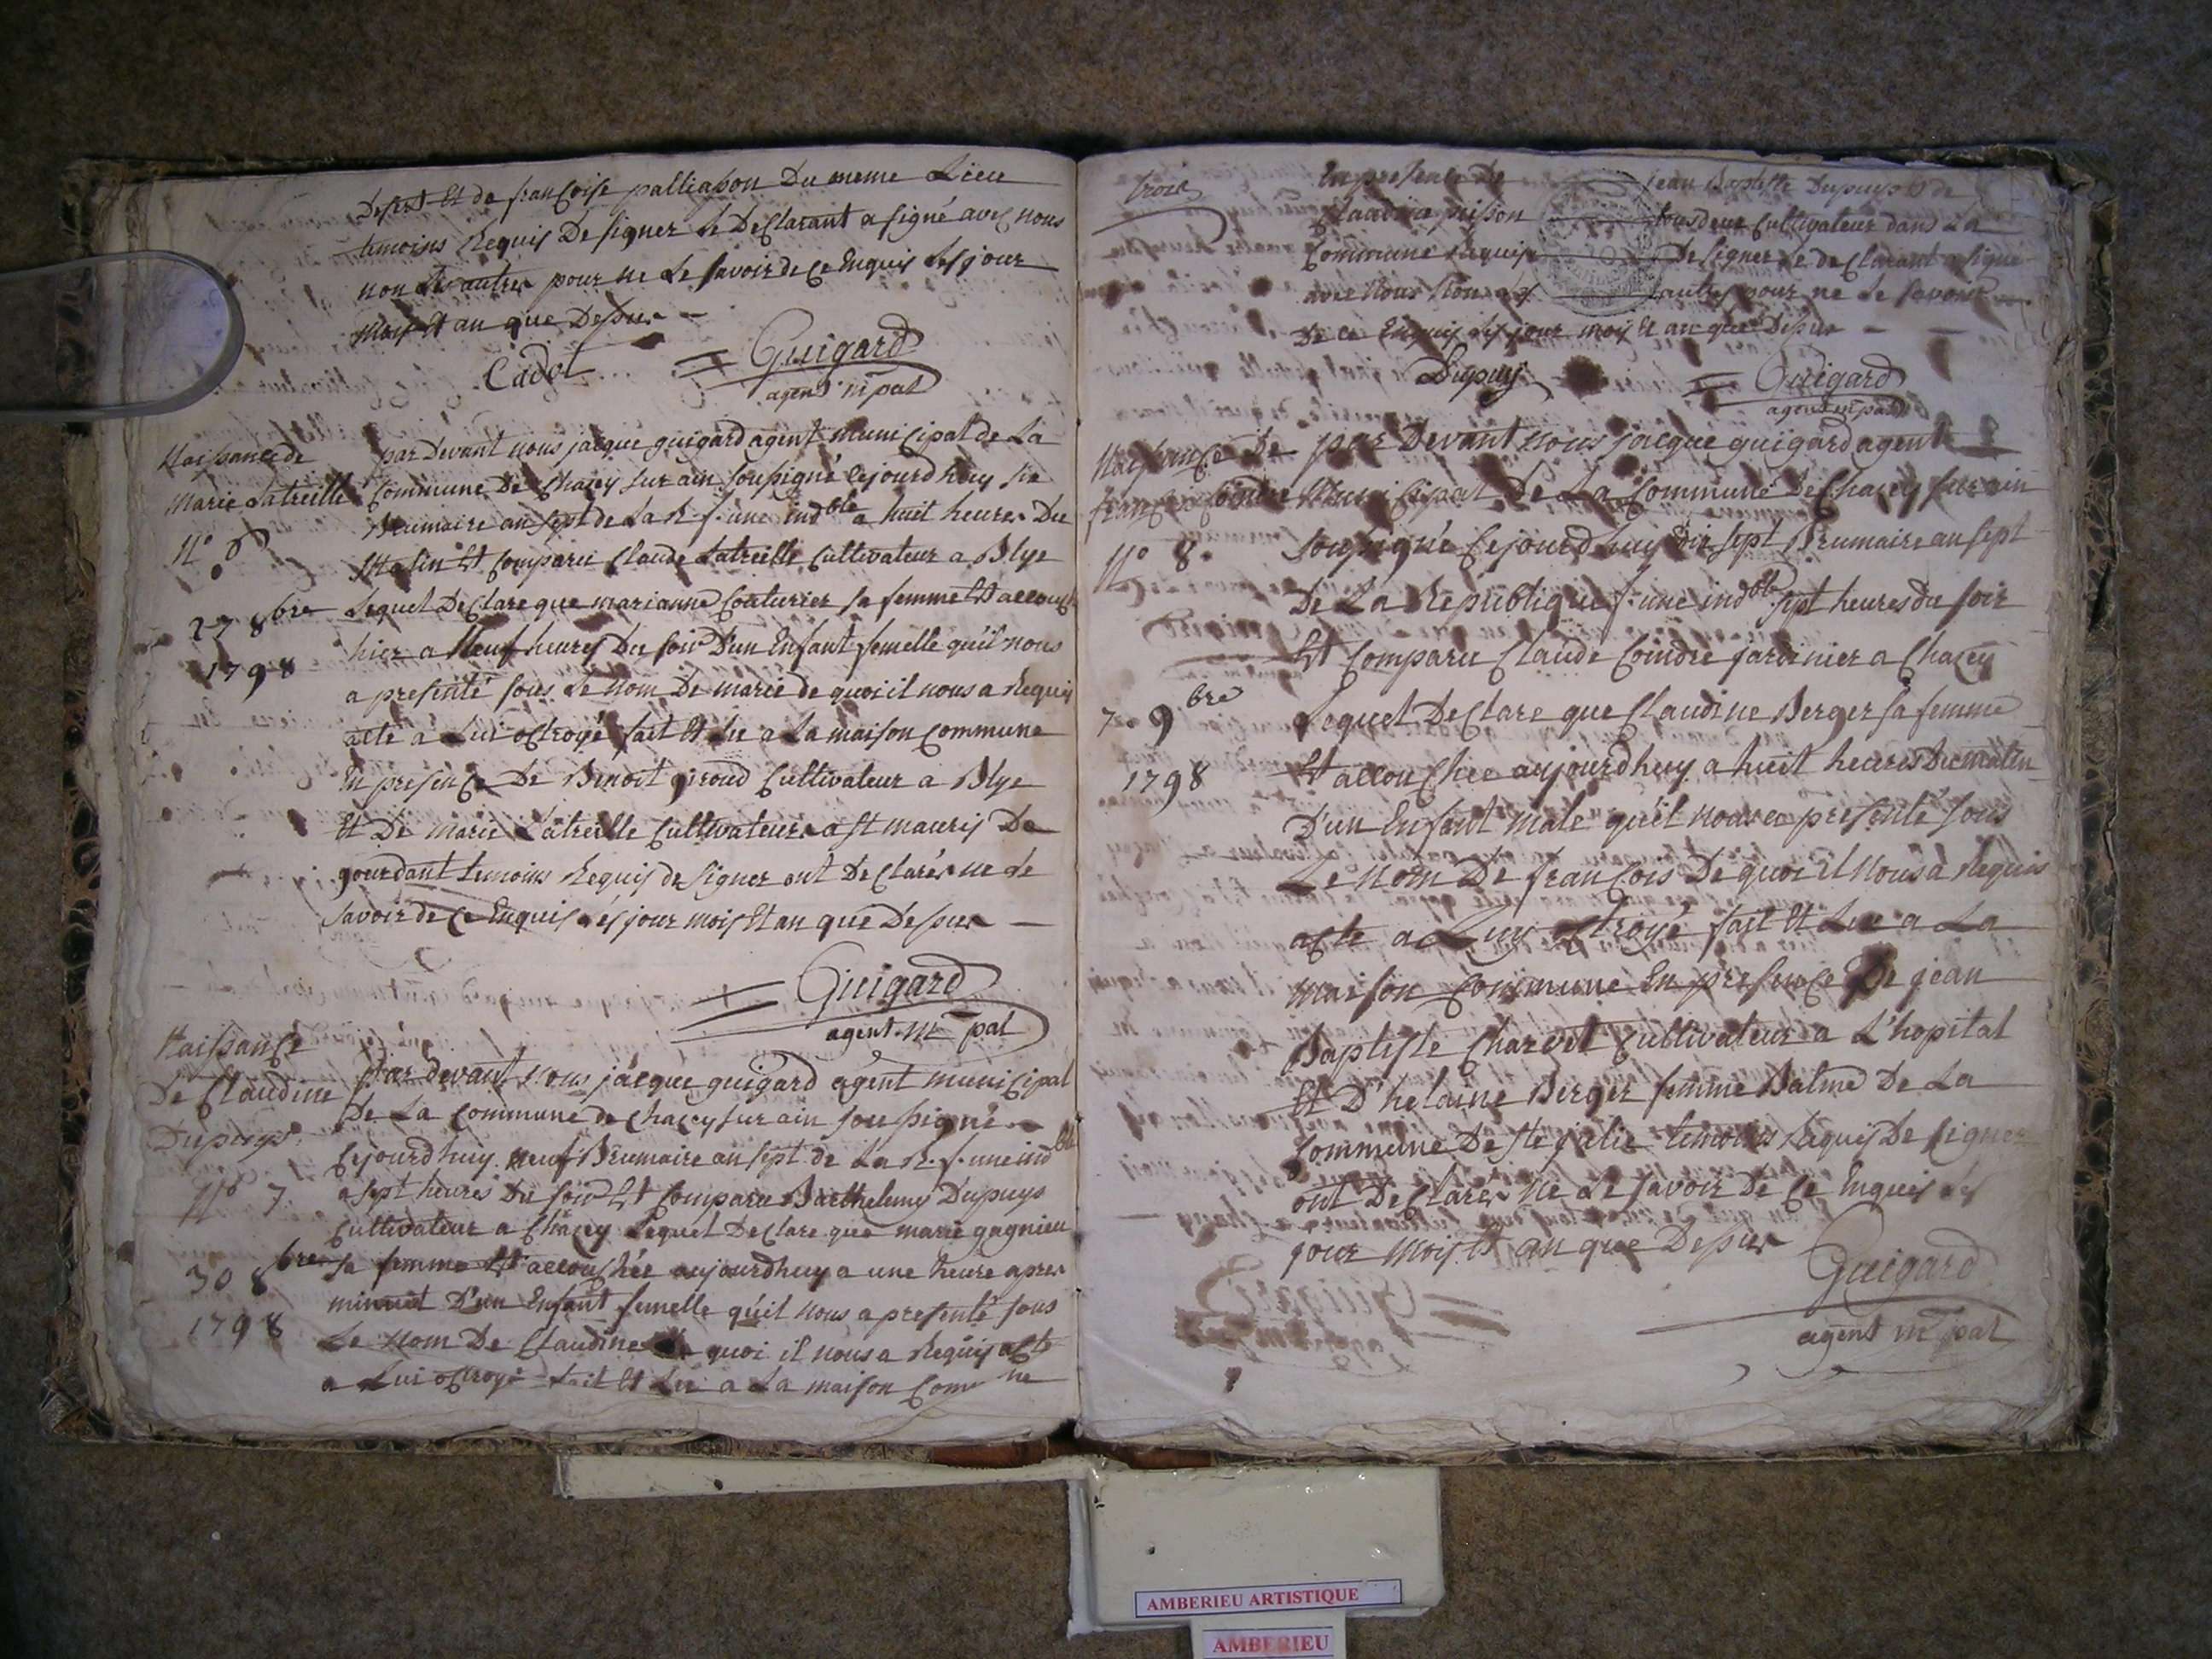 Desert Et de francoise palliasson Du meme Lieu
temoins Requis De signer Le Declarant a signé avec nous
non Les autres pour ne Le savoir de ce Enquis Les jour
mois Et an que Dessus
Cadot
Guigard
agent m pal
Naissance de
Marie Latreille
N° 6
27 8bre
1798
par Devant nous jacque guigard agent municipal de La
Commune De Chazey sur ain soussigné Cejourdhuy six
Brumaire an sept de La R. f. une indble a huit heures Du
Matin Est Comparu Claude Latreille Cultivateur a Blye
Lequel Declare que marianne Couturier sa femme Est accouch
hier a Neuf heures Du soir D'un Enfant femelle qu'il nous
a presenté sous Le Nom De marie de quoi il nous a Requis
acte a Lui octroyé fait Et Lu a La maison Commune
En presence De Benoit giroud Cultivateur a Blye
Et De Marie Latreille Cultivateure a st mauris De
gourdant temoins Requis de signer ont Declarés ne Le
savoir de Ce Enquis Les jour mois Et an que Dessus
Guigard
agent m pal
Naissance
De Claudine
Dupuys
N° 7
30 8bre
1798
Par devant Nous jacque guigard agent municipal
De La Commune de Chazey sur ain soussigné
Cejourdhuy neuf Brumaire an sept de La R. f. une indble
a sept heures Du soir Est Comparu Barthelemy Dupuys
Cultivateur a Chazey Lequel Declare que marie gagnieu
sa femme Est accouchée aujourdhuy a une heure apres
minuit D'un Enfant femelle qu'il nous a presenté sous
Le Nom De Claudine De quoi il nous a Requis acte
a Lui octroyé fait Et Lu a La maison Comune
En presence De jean Baptiste Dupuys Et de
Claudine tous deux Cultivateur dans La
Commune Requis De signer Le declarant a signé
avec Nous Non Les autres pour ne Le savoir
De ce Enquis Les jour mois Et an que Dessus
Dupuy
Guigard
agent m pal
Naissance De
françois Coindre
N° 8.
7. 9bre
1798
par Devant nous jacque guigard agent
Municipal De La Commune De Chazey sur ain
soussigné Cejourdhuy dix sept Brumaire an sept
De La Republique f. une indble sept heures du soir
Est Comparu Claude Coindre jardinier a Chazey
Lequel Declare que Claudine Berger sa femme
Est accouchée aujourdhuy a huit heures Du matin
D'un Enfant male qu'il nous a presenté sous
Le Nom De françois De quoi il Nous a Requis
acte a Luy octroyé fait Et Lu a La
maison Commune En presence De jean
Baptiste Charvet Cultivateur a L'hopital
Et D'helaine Berger femme Balme De La
Commune De ste julie temoins Requis De signer
ont Declarés Ne Le savoir De Ce Enquis Les
jour Mois Et an que Dessus
Guigard
agent m pal
AMBERIEU ARTISTIQUE
AMBERIEU